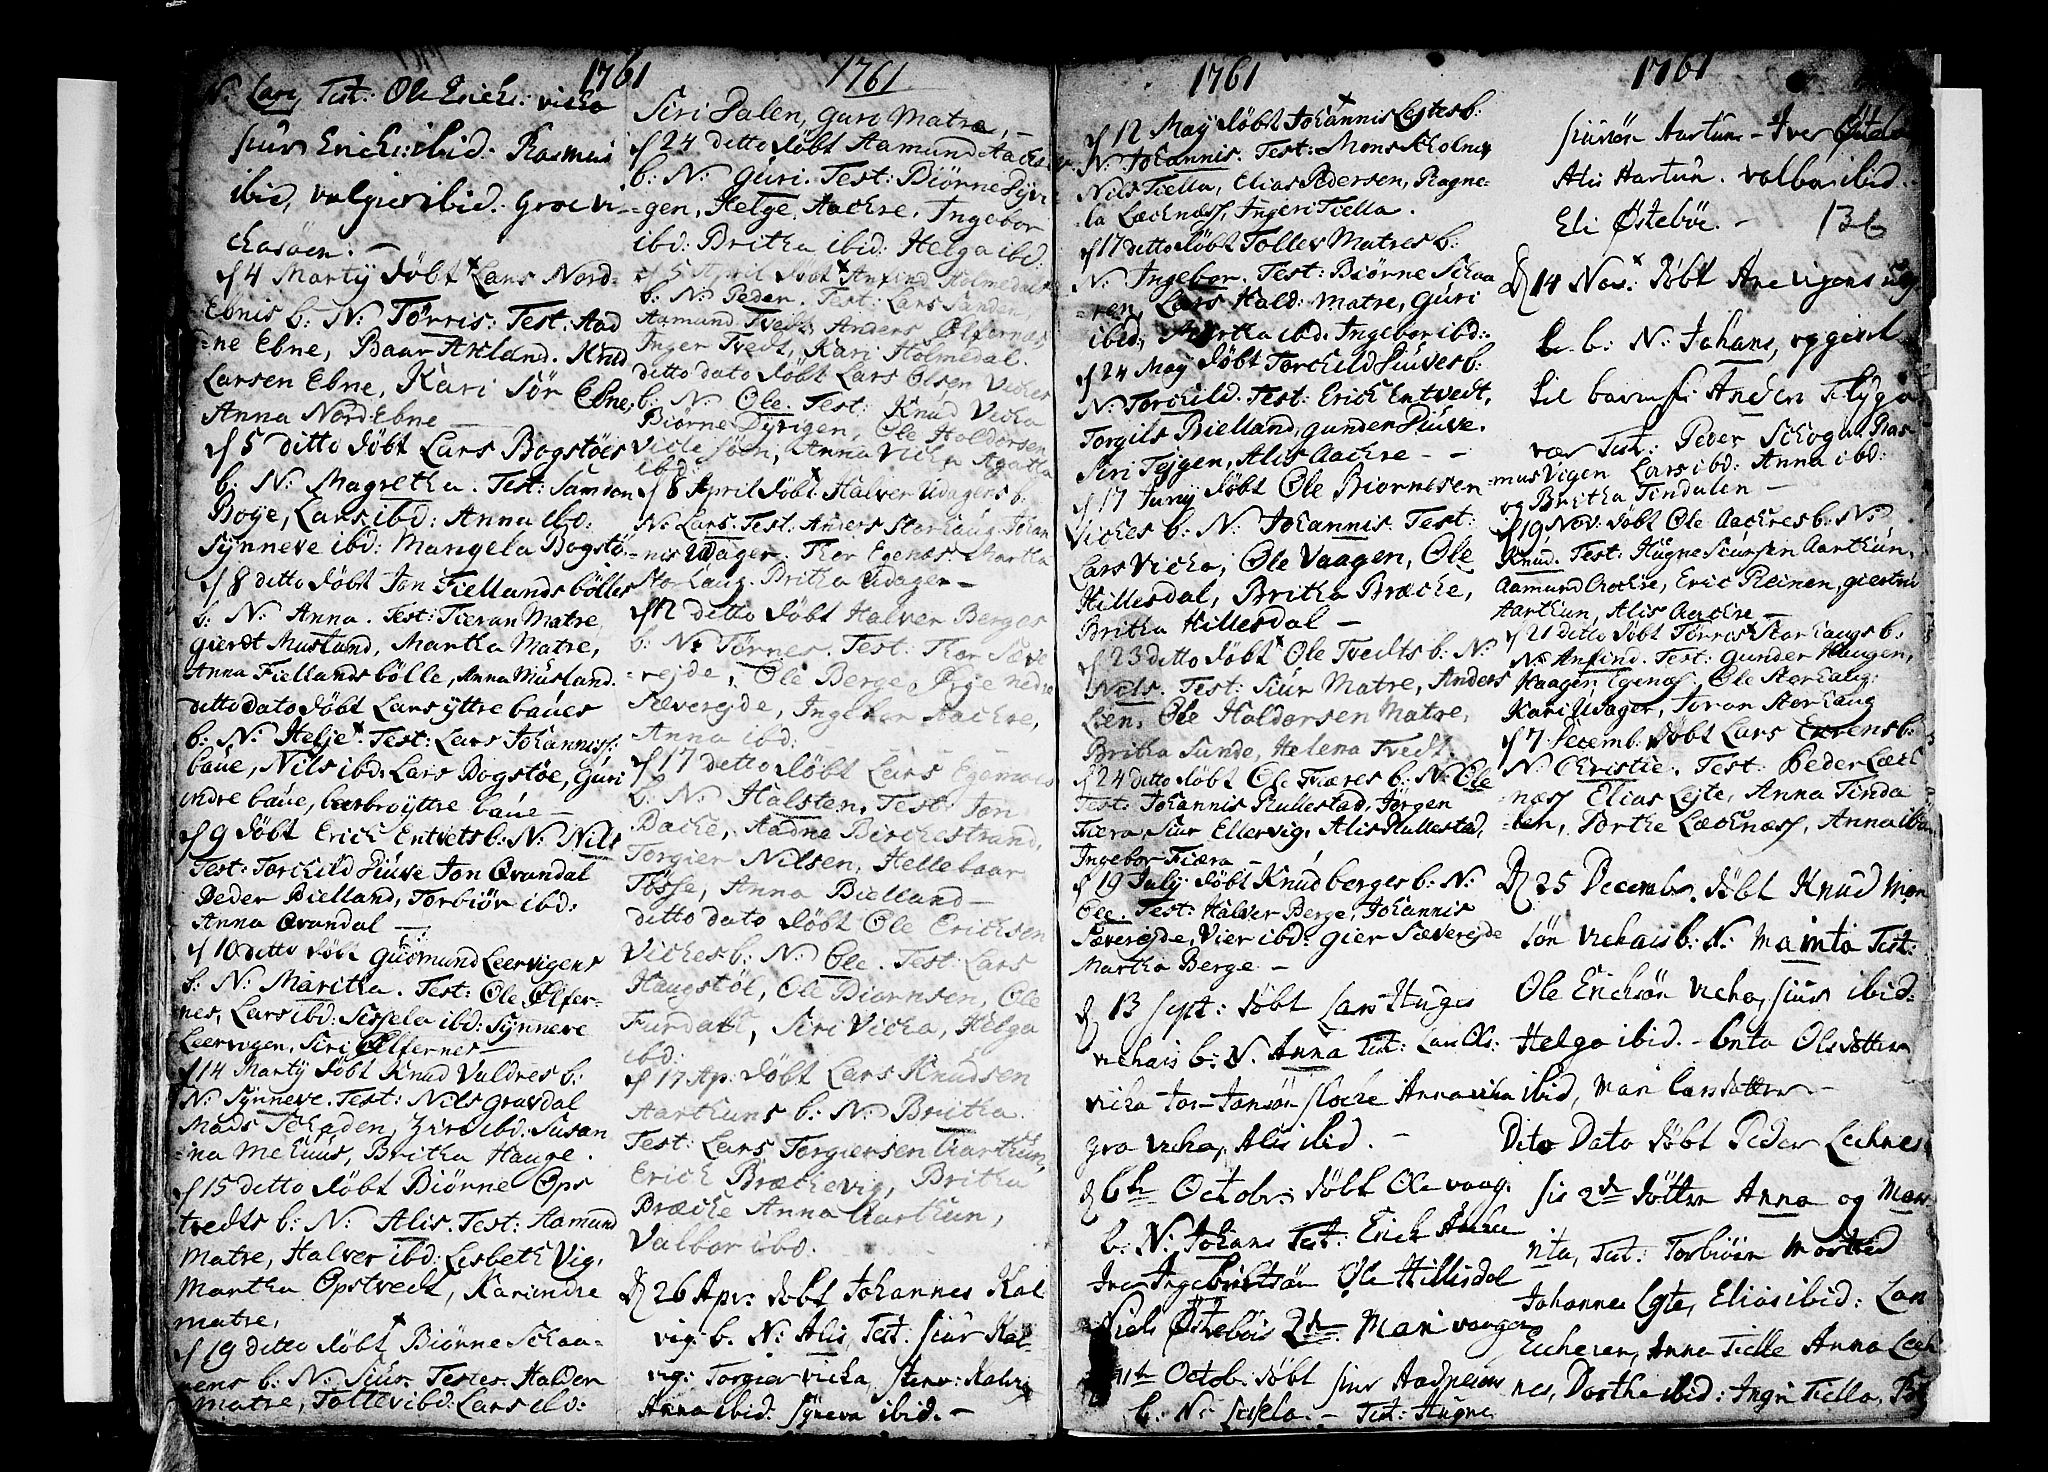 1761
N: Lars, Test: Ole Erichs: vicka
siur Erichs: ibid. Rasmus
ibid, valgier ibid. Groe vi-
chasöen. —
d 4 Martÿ döbt Lars Nord-
Ebnis b: N: Törris: Test: Aad
ne Ebne, Baar Axland. Knud
Larsen Ebne, Kari Sör Ebne,
Anna Nord Ebne —
d 5 ditto döbt Lars Bogstöes
b: N: Magretha. Test: Samson
Boye, Lars ibd: Anna ibd:
Synneve ibd: Mangela Bogstö
d 8 ditto döbt Jon Fiellandsbölles
b: N: Anna. Test: Tieran Matre
gierdt Musland, Martha Matre,
Anna Fiellandsbölle, Anna Musland.
ditto dato döbt Lars yttre baues
b: N: Helje. Test: Lars Johanniss:
baue, Nils ibd: Lars Bogstöe, Guri
indre baue, barbro yttre baue —
d 9 döbt Erich Entvets b: N: Nils
Test: Torchild Siuve Jon Qvandal
Peder Bielland, Torbiör ibd:
Anna Qvandal —
d 10 ditto döbt Gudmund Leervigens
b: N: Maritha. Test: Ole Ølfer-
nes, Lars ibd: Sissela ibd: Synneve
Leervigen, Siri Ølfernes —
d 14 Martÿ döbt Knud Valdres b:
N: Synneve. Test: Nils Gravdal
Mads Schaden, ibd: Susan
=na Mehuus, Britha Hauge.
d 15 ditto döbt Biörne Ops
tvedts b: N: Alis. Test: Aamund
Matre, Halver ibd: Lisbeth Vig,
Martha Opstvedt, Kari indre
matre,
d 19 ditto döbt Biörne Schaa-
nens b: N: Siur. Testes. Halder
matre, Tollev ibd: Lars ibd:
1761
Siri Dalen, Guri Matre, —
d 24 ditto döbt Aamund Aachres
b: N: Guri. Test: Biörne Dyvi
=gen, Helge Aachre, Ingebor
ibd: Britha ibid: Helga ibd:
d 5 April döbt Anfind Holmedals
b: N: Peder. Test: Lars Sanden
Aamund Tvedt, Anders Ølfernæs
Inger Tvedt, Kari Holmedal
ditto dato döbt Lars Olsen Viches
b: N: Ole. Test: Knud Vicha
Biörne Dyvigen, Ole Haldorsen
Viche söen, Anna Vicha Agatha
ibd:
d 8 April döbt Halver Udagers b:
N: Lars. Test. Anders Storhaug, Johan
nis Udager. Thor Egenæs. Martha
Storhaug. Britha Udager —
d 12 ditto döbt Halver Berges
b: N: Törnes. Test: Thor Sæve
=rejde, Ole Berge, Brye nedre
Sæverejde, Ingebor Aachre,
Anna ibd:
d 17 ditto döbt Lars Egenæs
b: N: Halsten. Test: Jon
Bache, Aadne Birchestrand,
Torgier Nilsen, Helle baar
Tösse, Anna Bielland —
ditto dato döbt Ole Erichsen
Viches b: N: Ole. Test: Lars
Haugstöl, Ole Biörnsen, Ole
Furdahl, Siri Vicha, Helga
ibd:
d 17 Ap: döbt Lars Knudsen
Aarthuns b: N: Britha.
Test: Lars Torgiersen Aarthun,
Erich Bræchevig, Britha
Bræche Anna Aarthun,
Valbor ibd.
d 26 Apr: döbt Johannes Kal
vig: b. N: Alis, Test. siur Kal-
vig: Torgier vicka, Kalvig
Anna ibid. syneva ibid. —
1761
d 12 May döbt Johannis Lejtes b:
N: Johannis. Test: Mons Scholnes
Nils Tiella, Elias Pedersen, Ragne-
la Lachnæss, Ingeri Tiella.
d 17 ditto döbt Tollev Matres b:
N: Ingebor. Test: Biörne Schaa
=nen, Lars Hald: matre, Guri
ibid, Martha ibd. Ingebor ibd:
d 24 May döbt Torchild Siuves b:
N: Torchild. Test: Erich Entvedt,
Torgils Bielland, gunder Siuve.
Siri Tejgen, Alis Aachre — —
d 17 Juny döbt Ole Biornesen
Viches b: N: Johannis. Test:
Lars Vicha, Ole Vaagen, Ole
Hillesdal, Britha Bræche,
Britha Hillesdal —
d 23 ditto döbt Ole Tvedts b: N:
Nils. Test: Siur Matre, Anders
Lien. Ole Haldorsen Matre,
Britha Sunde, Helena Tvedt.
d 24 ditto döbt Ole Tiæres b: N: Ole
Test: Johannis Rullestad, Jörgen
Tiæra, Siur Ellervig, Alis Rullestad,
Ingebor Tiæra —
d 19 July döbt Knud berges b: N:
Ole. Test: Halver Berge, Johannis
Sæverejde, Vier ibd: gier Sæverejde
Martha Berge —
d 13 Sept: döbt Lars Huges
vichais b: N. Anna Test: Lars Ols:
vicka Jon Jonsön Anna vicka
gro vicha, Alis ibid. —
d 6te Octobr: döbt Ole vaag:
b: N: Johans Test: Erich Aachre
Iver Ingebrictsön Ole Hillisdal
Niels Østebøis 2de Mari vaagen
11te Octob. döbt siur Aadneiens
b: N: Sisela. — Test: Hugne
1761
siursön Aartun — Iver
Alis Hartun. valbor ibid. —
Eli Østeböe. — 136
d 14 Nov: döbt Ane vigens
b: N: Johans, opgivet
til barnef: Anders Flyga
vær Test: Peder Schoga Ras-
mus Vigen Lars ibd: Anna ibd:
og Britha Tindalen —
d 19 Nov: döbt Ole Aachres b: N:
Knud. Test: Hugne Siursen Aarthun,
Aamund Aachre, Eric Reinen, giertru
Aarthun, Alis Aachre —
d 21 ditto döbt Törres Storhaugs b:
N: Anfind. Test: Gunder Haugen,
Haagen Egenæs, Ole Storhaug:
Kari Udager, Joran Storhaug
d 7 Decemb. döbt Lars Ekrens b:
N: Christie. Test: Peder Lech
=næss Elias Lejte, Anna Tinda
=len, Dorthe Lechnæss, Anna ibd:
d 25 Decembr. döbt Knud Mon
sön vichais b: N: Marita Test:
Ole Erichsön vicha, siur ibid:
Helga ibid. — brita Olsdotter
ibid, Mari Larsdotter —
Dito Dato döbt Peder Lechnes
sis 2de dötter Anna og Mar
rita, Test: Torbiörn
Johannes Lejte, Elias ibid: Lars
Eicheren, Anna Tielle Anna Lech
nes, Dorthe ibid: Ingri Tiella,